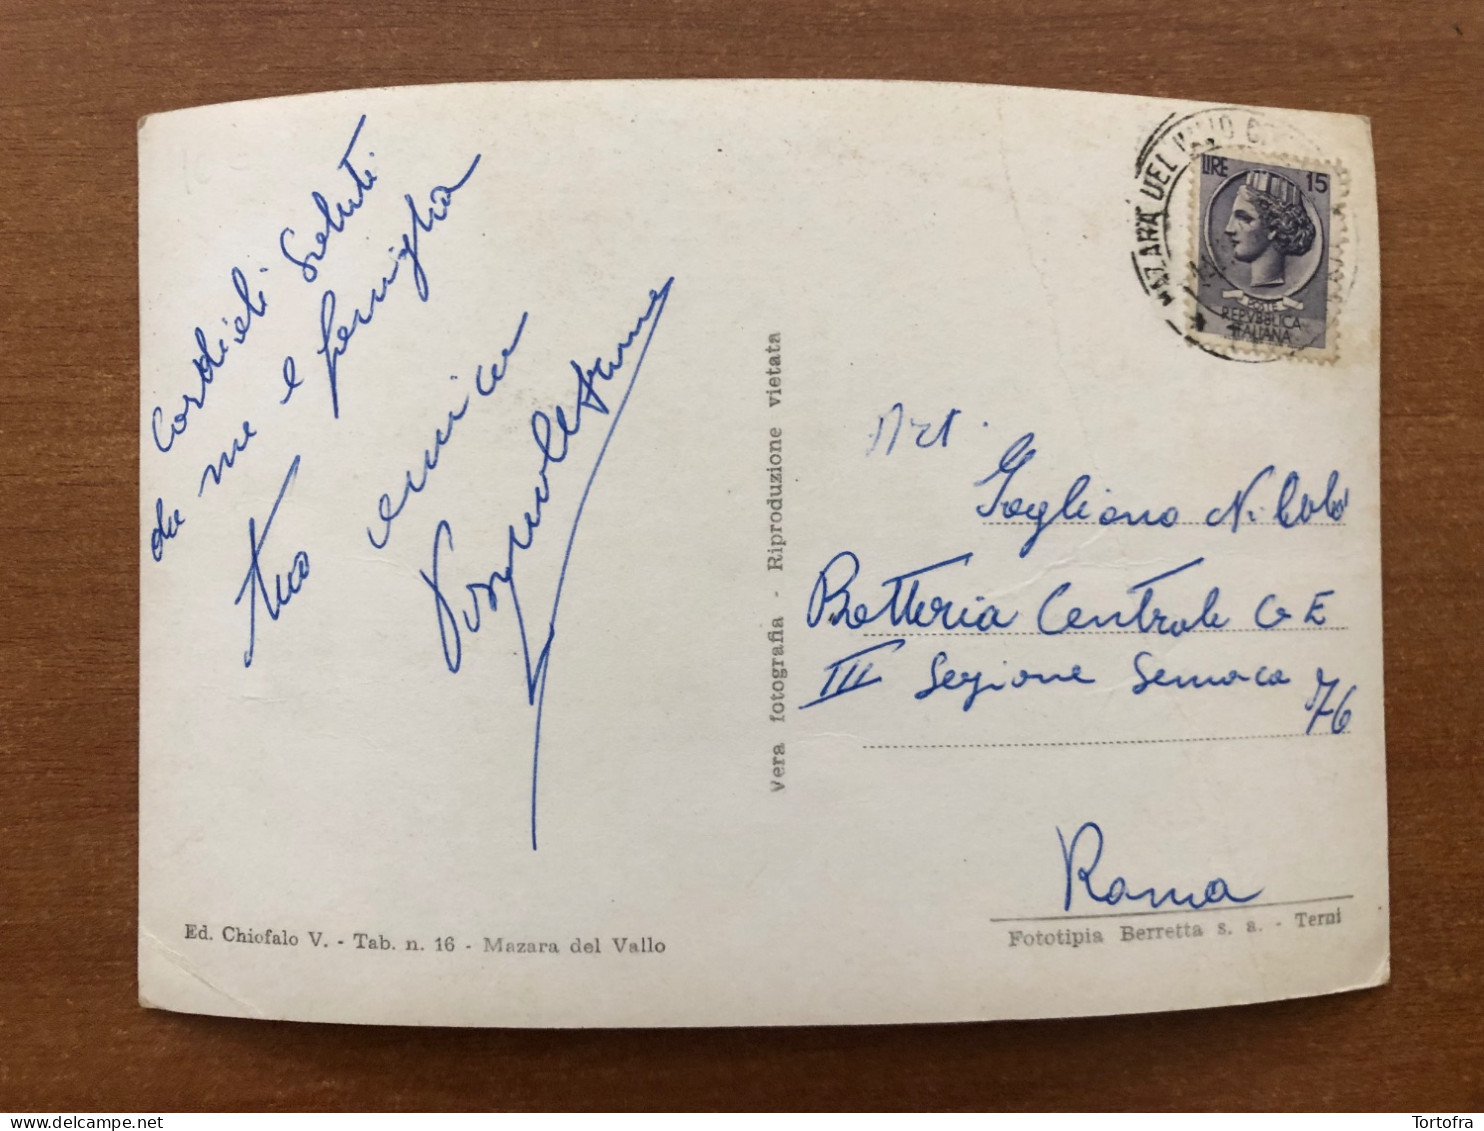 Cordiali saluti
da me e famiglia
tuo amico
MAZARA DEL VALLO
LIRE 15
POSTE
REPVBBLICA
ITALIANA
Art.
Gogliano Nicolò
Batteria Centrale G E
III Sezione 76
Roma
vera fotografia - Riproduzione vietata
Ed. Chiofalo V. - Tab. n. 16 - Mazara del Vallo
Fototipia Berretta s. a. - Terni
Tortofra